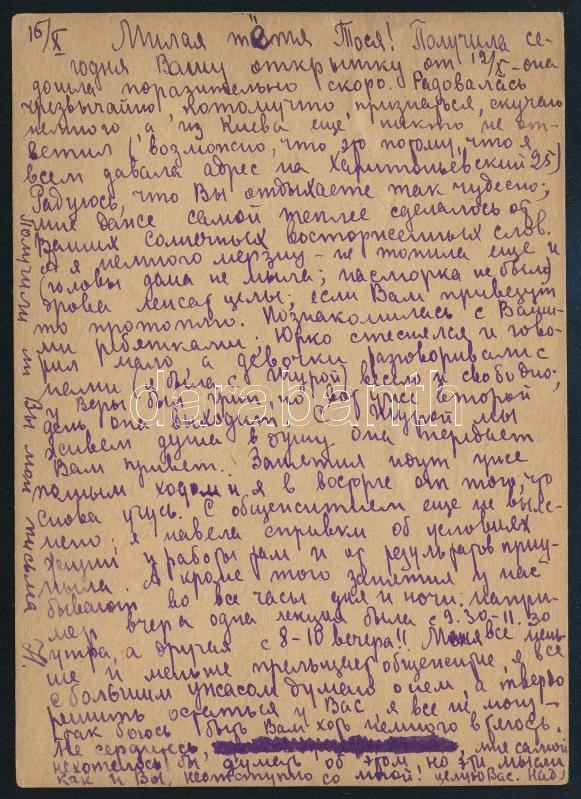 16/X Милая тётя Тося! Получила се-
годня Вашу открытку от 12/X - она
дошла поразительно скоро. Радовалась
чрезвычайно потомучто признаться, скучаю
немного, а из Киева ещё никто не от-
ветил (возможно, что это потому, что я
всем давала адрес на Харитоньевский 25)
Радуюсь, что Вы отдыхаете так чудесно;
мне даже самой теплее сделалось от
Ваших солнечных восторженных слов.
а я немного мерзну - не топила еще и
(головы дома не мыла; насморка не было)
дрова лежат целы; если Вам привезут
то протоплю. Познакомилась с Ваши-
ми ребятками. Юрко стеснялся и гово-
рил мало а девочки разговаривали с
нами (была с Шурой) весело и свободно;
у Веры был грип, но вот уже второй
день она выходит. С Шурой мы
живем душа в душу она передает
Вам привет. Занятия идут уже
полным ходом и я в восторге от того, что
снова учусь. С общежитием еще не выяс-
нено; я навела справки об условиях
жизни и работы там и от результатов приу-
ныла. А кроме того занятия у нас
бывают во все часы дня и ночи: напри-
мер вчера одна лекция была с 9.30-11.30
утра, а другая с 8-10 вечера!! Меня все мень-
ше и меньше прельщает общежитие, я все
с большим ужасом думаю о нем, а твердо
решить остаться у Вас я все не могу-
так боюсь быть Вам хоть немного в тягость.
Не сердитесь, мне самой
нехотелось бы думать об этом, но эти мысли
как и Вы, неотступно со мной! целую Вас. Надя
Получили ли Вы мои письма
darabanth